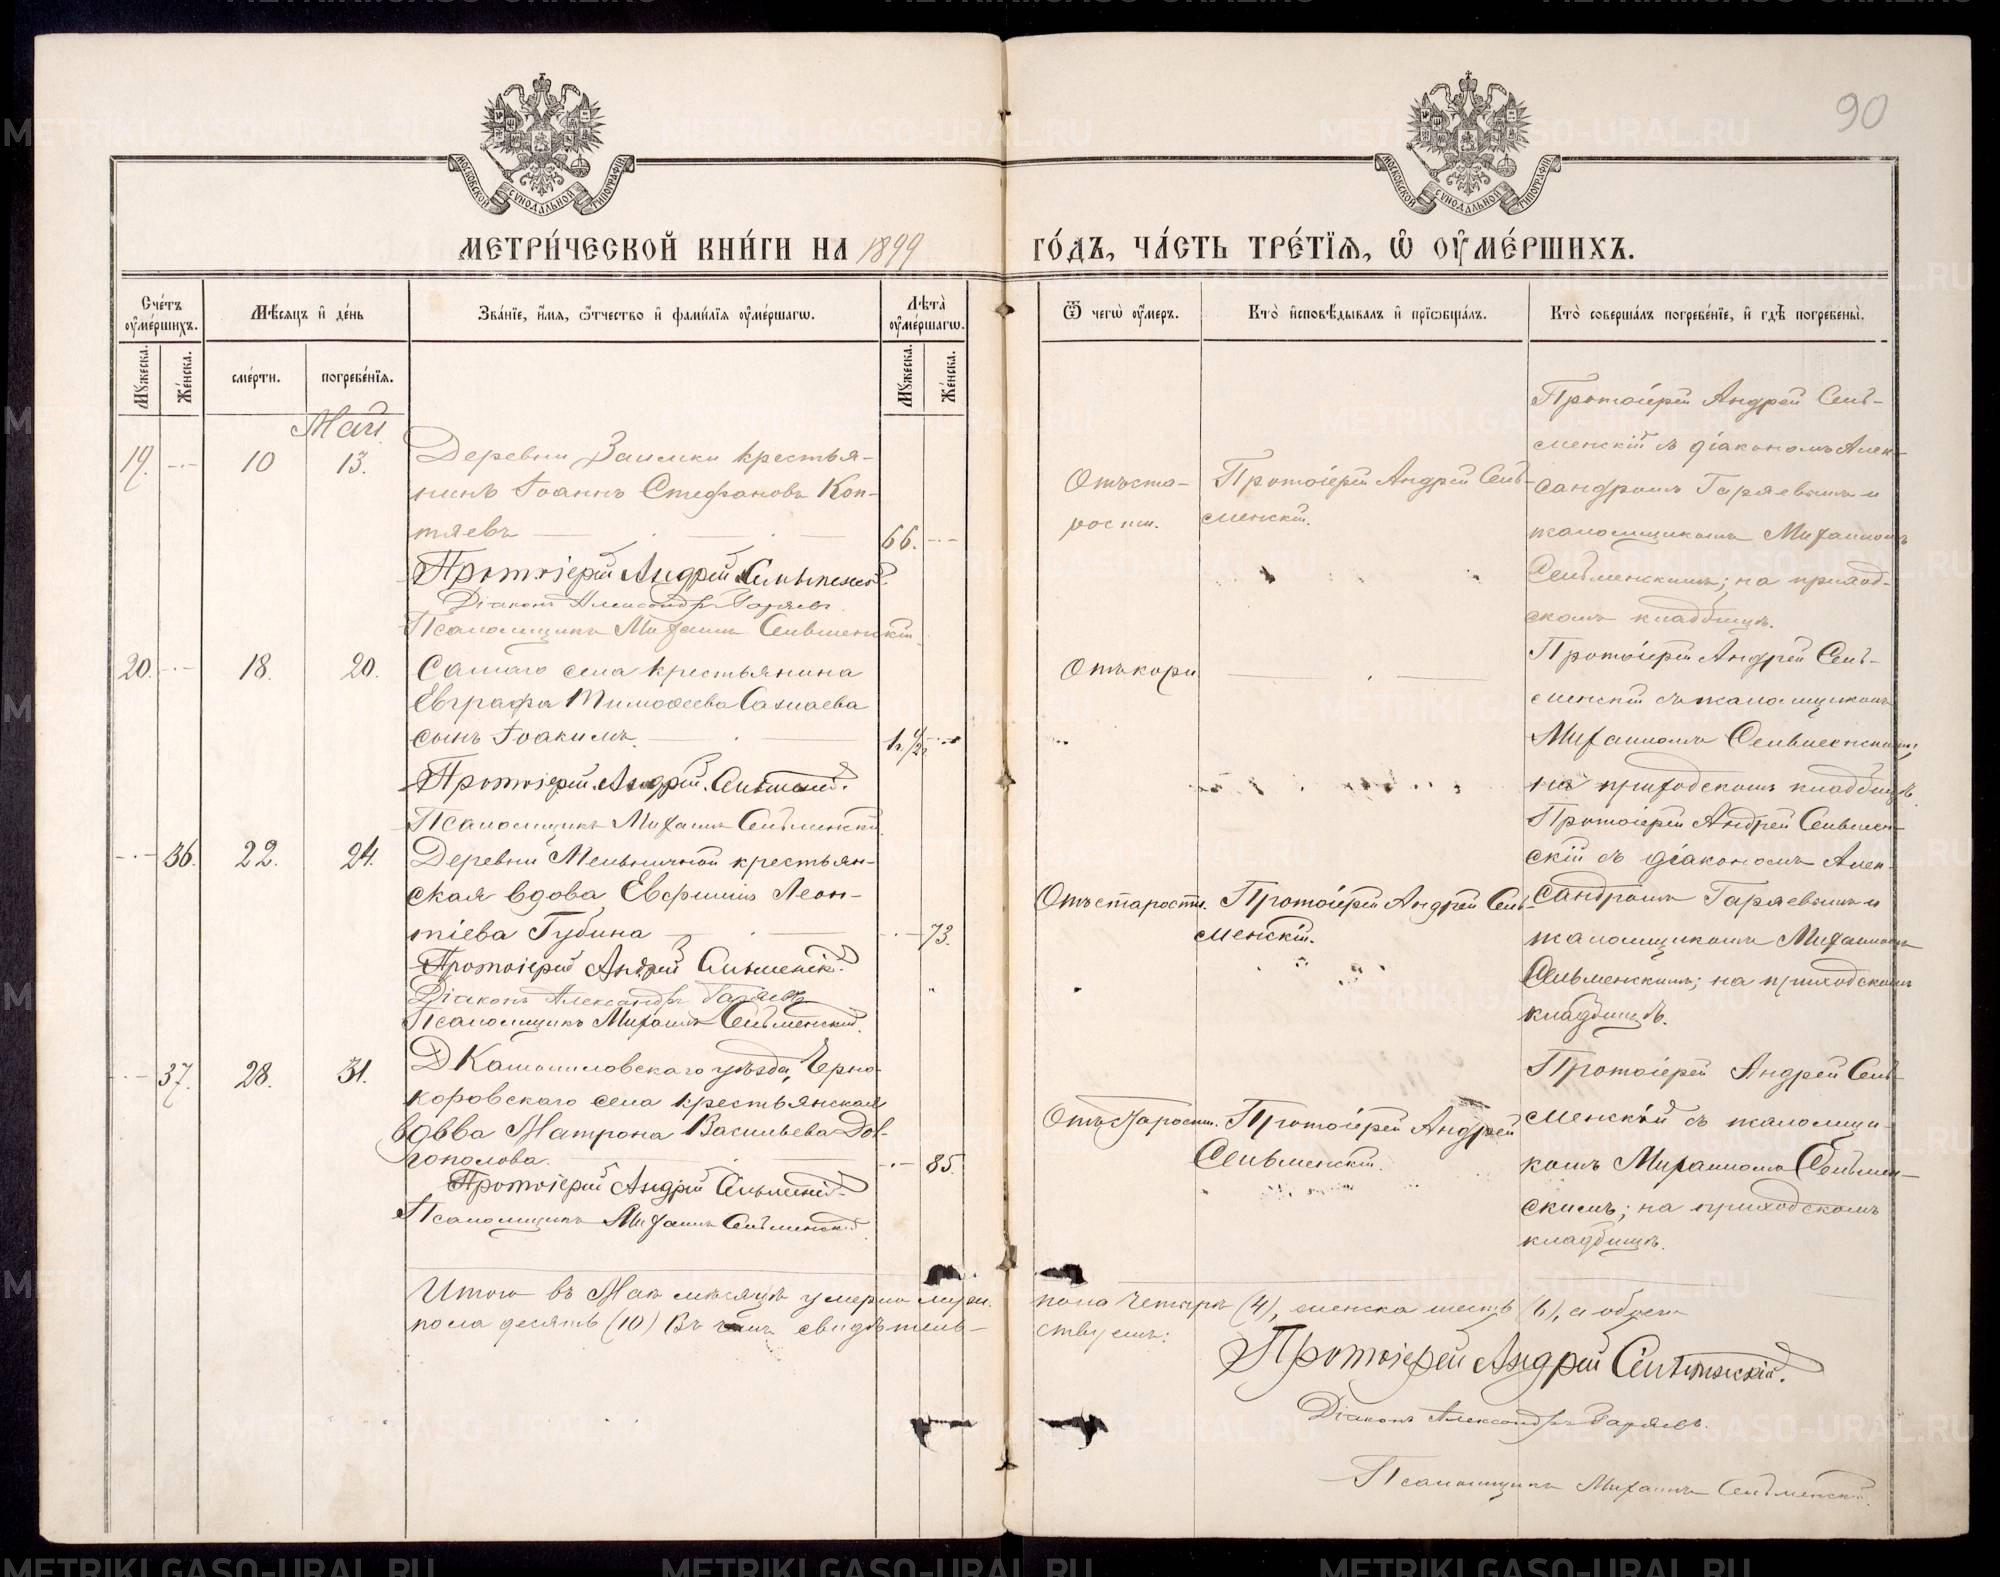 90
МОСКОВСКОЙ СУНОДАЛЬНОЙ ТИПОГРАФІИ
МОСКОВСКОЙ СУНОДАЛЬНОЙ ТИПОГРАФІИ
МЕТРИ́ЧЕСКОЙ КНИ́ГИ НА 1899 ГО́ДЪ, ЧА́СТЬ ТРЕ́ТІЯ, Ѡ ОУ҆МЕ́РШИХЪ.
Сче́тъ оу҆ме́ршихъ.
Мѣ́сяцъ и҆ де́нь
Зва́нїе, и҆́мя, ѻ҆́тчество и҆ фами́лїя оу҆ме́ршагѡ.
Лѣта̀ оу҆ме́ршагѡ.
Ѿ чегѡ̀ оу҆́меръ.
Кто̀ и҆сповѣ́дывалъ и҆ прїѡбща́лъ.
Кто̀ соверша́лъ погребе́нїе, и҆ гдѣ̀ погребены̀.
Мꙋ́жеска.
Же́нска.
сме́рти.
погребе́нїя.
Мꙋ́жеска.
Же́нска.
Май
19. -·- 10 13.
Деревни Заимки крестья-
нинъ Іоаннъ Стефановъ Коп-
тяевъ 66. -·-
Протоіерей Андрей Сельменскій.
Діаконъ Александръ Гаряевъ.
Псаломщикъ Михаилъ Сельменскій
Отъ ста-
рости.
Протоіерей Андрей Сель-
менскій.
Протоіерей Андрей Сель-
менскій съ діакономъ Алек-
сандромъ Гаряевымъ и
псаломщикомъ Михаиломъ
Сельменскимъ; на приход-
скомъ кладбищѣ.
20. -·- 18. 20.
Самаго села крестьянина
Евграфа Тимоѳеева
сынъ Іоакимъ. 1 1/2 -·-
Протоіерей Андрей Сельменскій.
Псаломщикъ Михаилъ Сельменскій
Отъ кори
Протоіерей Андрей Сель-
менскій съ псаломщикомъ
Михаиломъ Сельменскимъ;
на приходскомъ кладбищѣ.
-·- 36. 22. 24.
Деревни Мельничной крестьян-
ская вдова Евфимія Леон-
тіева Губина -·- 73.
Протоіерей Андрей Сельменскій.
Діаконъ Александръ Гаряевъ
Псаломщикъ Михаилъ Сельменскій.
Отъ старости.
Протоіерей Андрей Сель-
менскій.
Протоіерей Андрей Сельмен-
скій съ діакономъ Алек-
сандромъ Гаряевымъ и
псаломщикомъ Михаиломъ
Сельменскимъ; на приходскомъ
кладбищѣ.
-·- 37. 28. 31.
Камышловскаго уѣзда, Черно-
коровскаго села крестьянская
вдова Матрона Васильева Дол-
гополова. -·- 85.
Протоіерей Андрей Сельменскій.
Псаломщикъ Михаилъ Сельменскій.
Отъ старости.
Протоіерей Андрей
Сельменскій.
Протоіерей Андрей Сель-
менскій съ псаломщи-
комъ Михаиломъ Сельмен-
скимъ; на приходскомъ
кладбищѣ.
Итого въ Маѣ мѣсяцѣ умерло муж. пола четыре (4), женска шесть (6), а обоего
пола десять (10) Въ чемъ свидѣтель-
ствуемъ:
Протоіерей Андрей Сельменскій.
Діаконъ Александръ Гаряевъ.
Псаломщикъ Михаилъ Сельменскій.
METRIKI.GASO-URAL.RU